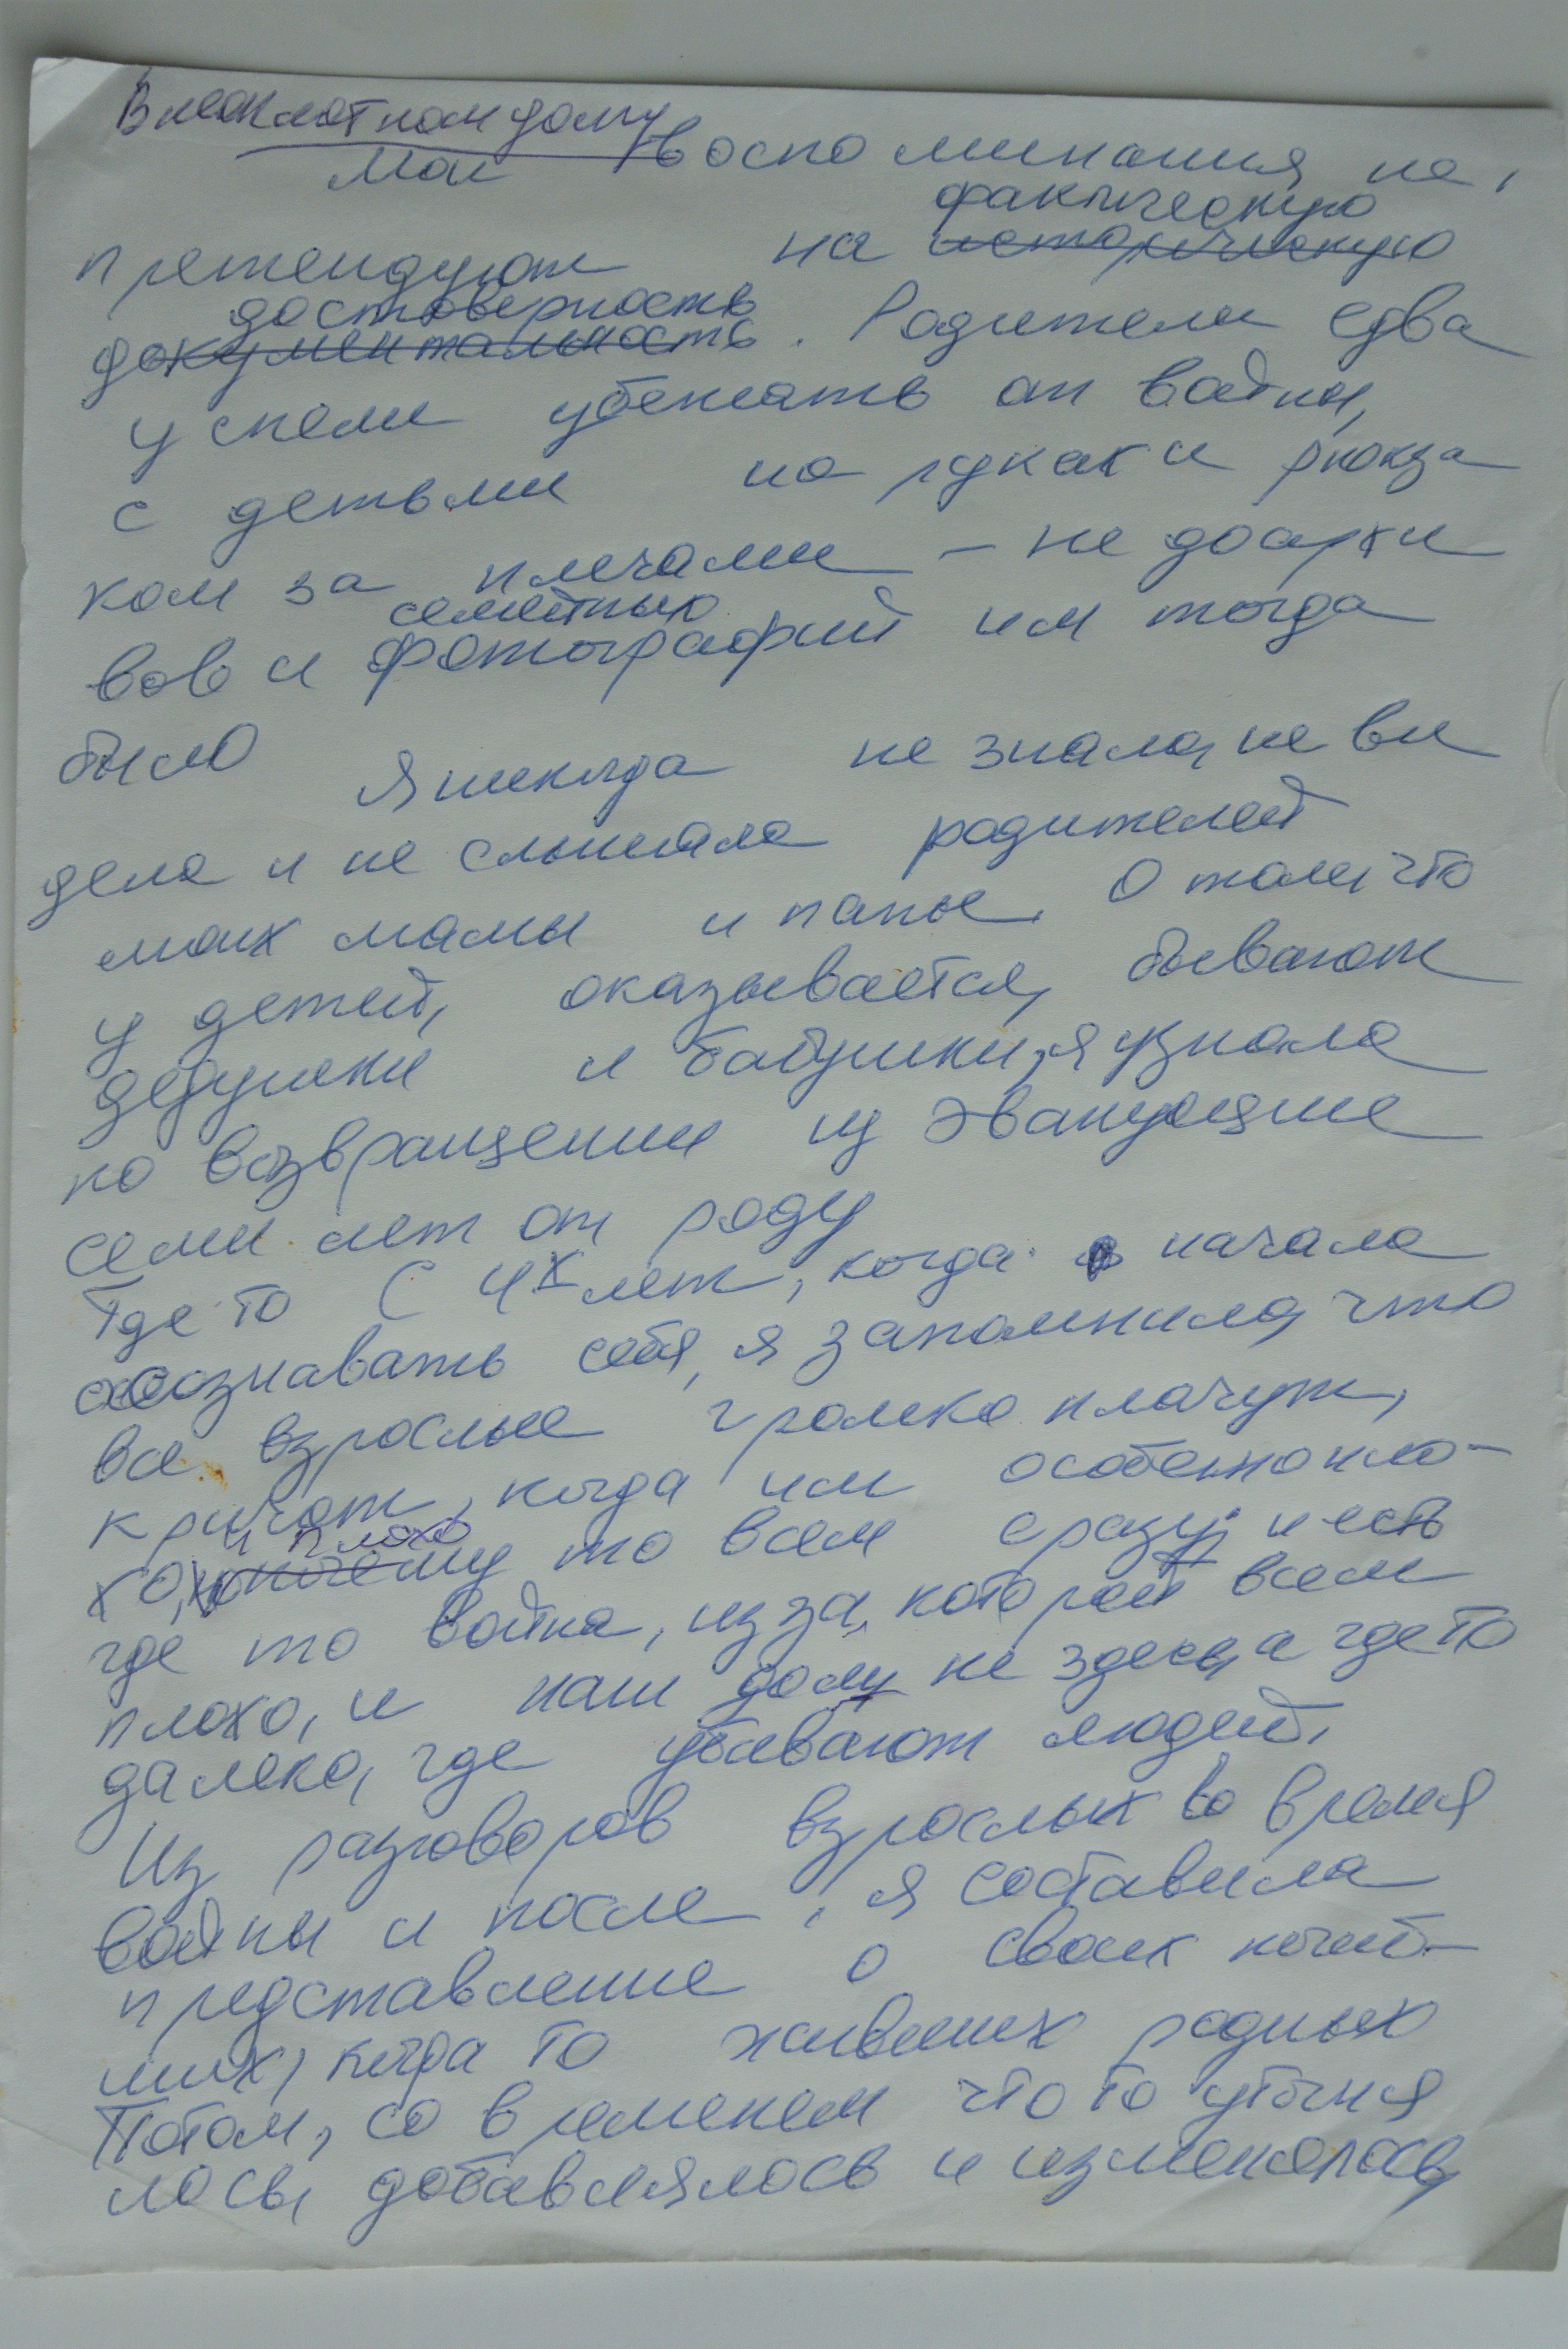 В неоклотном дому
Мои воспоминания не
фактическую
претендуют на историческую
достоверность
документальность. Родители едва
успели убежать от войны,
с детьми на руках и рюкза
ком за плечами – не до архи
семейных
вов и фотографий им тогда
было Я никогда не знала, не ви
дела и не слышала родителей
моих мамы и папы. О том, что
у детей, оказывается, бывают
дедушки и бабушки, я узнала
по возвращении из эвакуации
семи лет от роду
Где то с 4х лет, когда начала
осознавать себя, я запомнила, что
все взрослые громко плачут,
кричат, когда им особенно пло-
и плохо
хо, почему то всем сразу, и есть
где то война, из за которой всем
плохо, и наш дом не здесь, а где то
далеко, где убивают людей.
Из разговоров взрослых во время
войны и после, я составила
представление о своих погиб-
ших, когда то живших родных
Потом, со временем что то уточня
лось, добавлялось и изменялось,